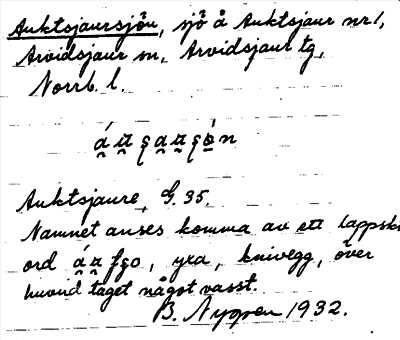 Auktsjaursjön, sjö å Auktsjaur nr 1,
Arvidsjaur sn, Arvidsjaur tg,
Norrb. l.
Auktsjaure, G. 35.
Namnet anses komma av ett lappskt
ord, yxa, knivegg, över
huvud taget något vasst.
B. Nygren 1932.